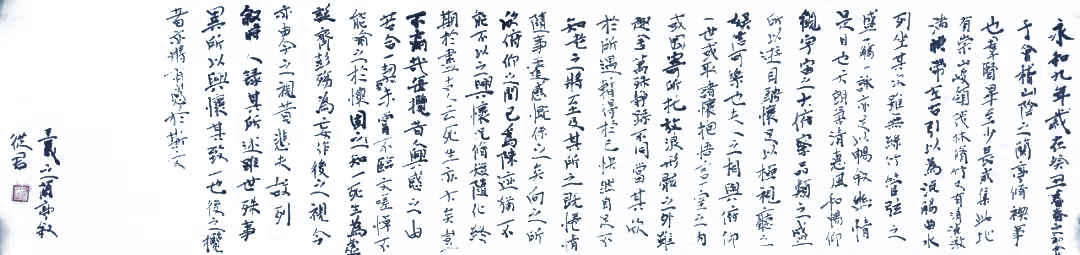 永和九年歲在癸丑暮春之初會
于會稽山陰之蘭亭脩稧事
也羣賢畢至少長咸集此地
有崇山峻領茂林脩竹又有清流激
湍暎帶左右引以為流觴曲水
列坐其次雖無絲竹管弦之
盛一觴一詠亦足以暢敘幽情
是日也天朗氣清惠風和暢仰
觀宇宙之大俯察品類之盛
所以遊目騁懷足以極視聽之
娛信可樂也夫人之相與俯仰
一世或取諸懷抱悟言一室之內
或因寄所托放浪形骸之外雖
趣舍萬殊靜躁不同當其欣
於所遇暫得於己快然自足不
知老之將至及其所之既惓情
隨事遷感慨係之矣向之所
欣俯仰之間已為陳迹猶不
能不以之興懷況脩短隨化終
期於盡古人云死生亦大矣豈
不痛哉每攬昔人興感之由
若合一契未嘗不臨文嗟悼不
能喻之於懷固知一死生為虛
誕齊彭殤為妄作後之視今
亦由今之視昔悲夫故列
敘時人錄其所述雖世殊事
異所以興懷其致一也後之攬
者亦將有感於斯文
王羲之蘭亭敘